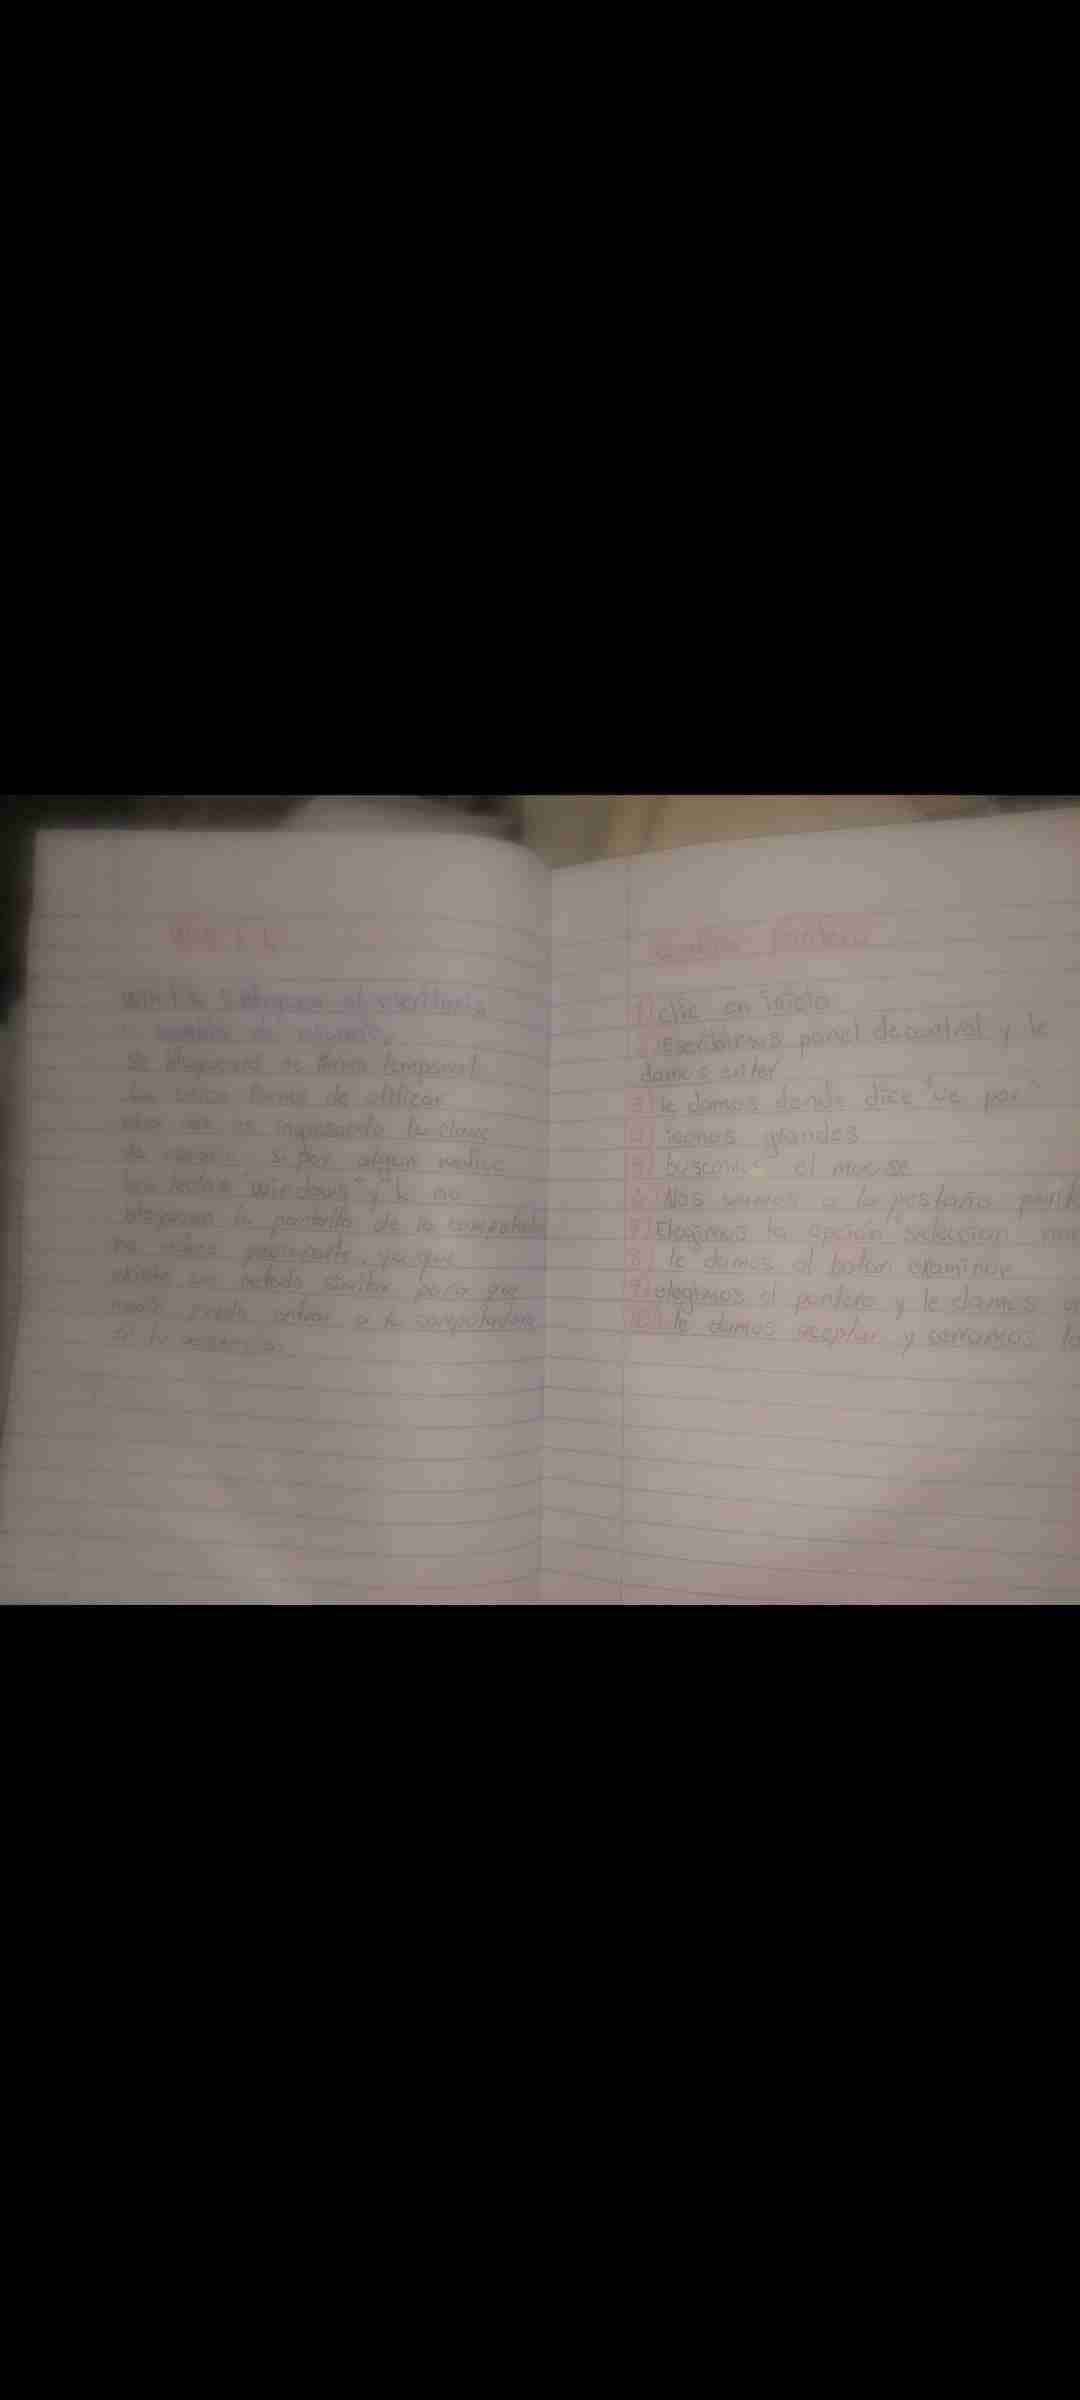 Win + L
Win + L : bloquea el escritorio
se bloqueará de forma temporal
La única forma de utilizar
es ingresando la clave
si por algun motivo
las teclas "windows" y "L no
bloquean la pantalla de la computadora
no debes preocuparte, ya que
existe un metodo similar para que
nadie pueda entrar a tu computadora
en tu ausencia.
cambiar puntero
1) clic en inicio
2) Escribirmos panel de control y le
damos enter
3) le damos donde dice "ve por"
4) iconos grandes
5) buscamos el mouse
6) Nos vamos a la pestaña
7) Elegimos la opción "seleccion
8) le damos al boton examinar
9) elegimos el puntero y le damos
10) le damos aceptar y cerramos